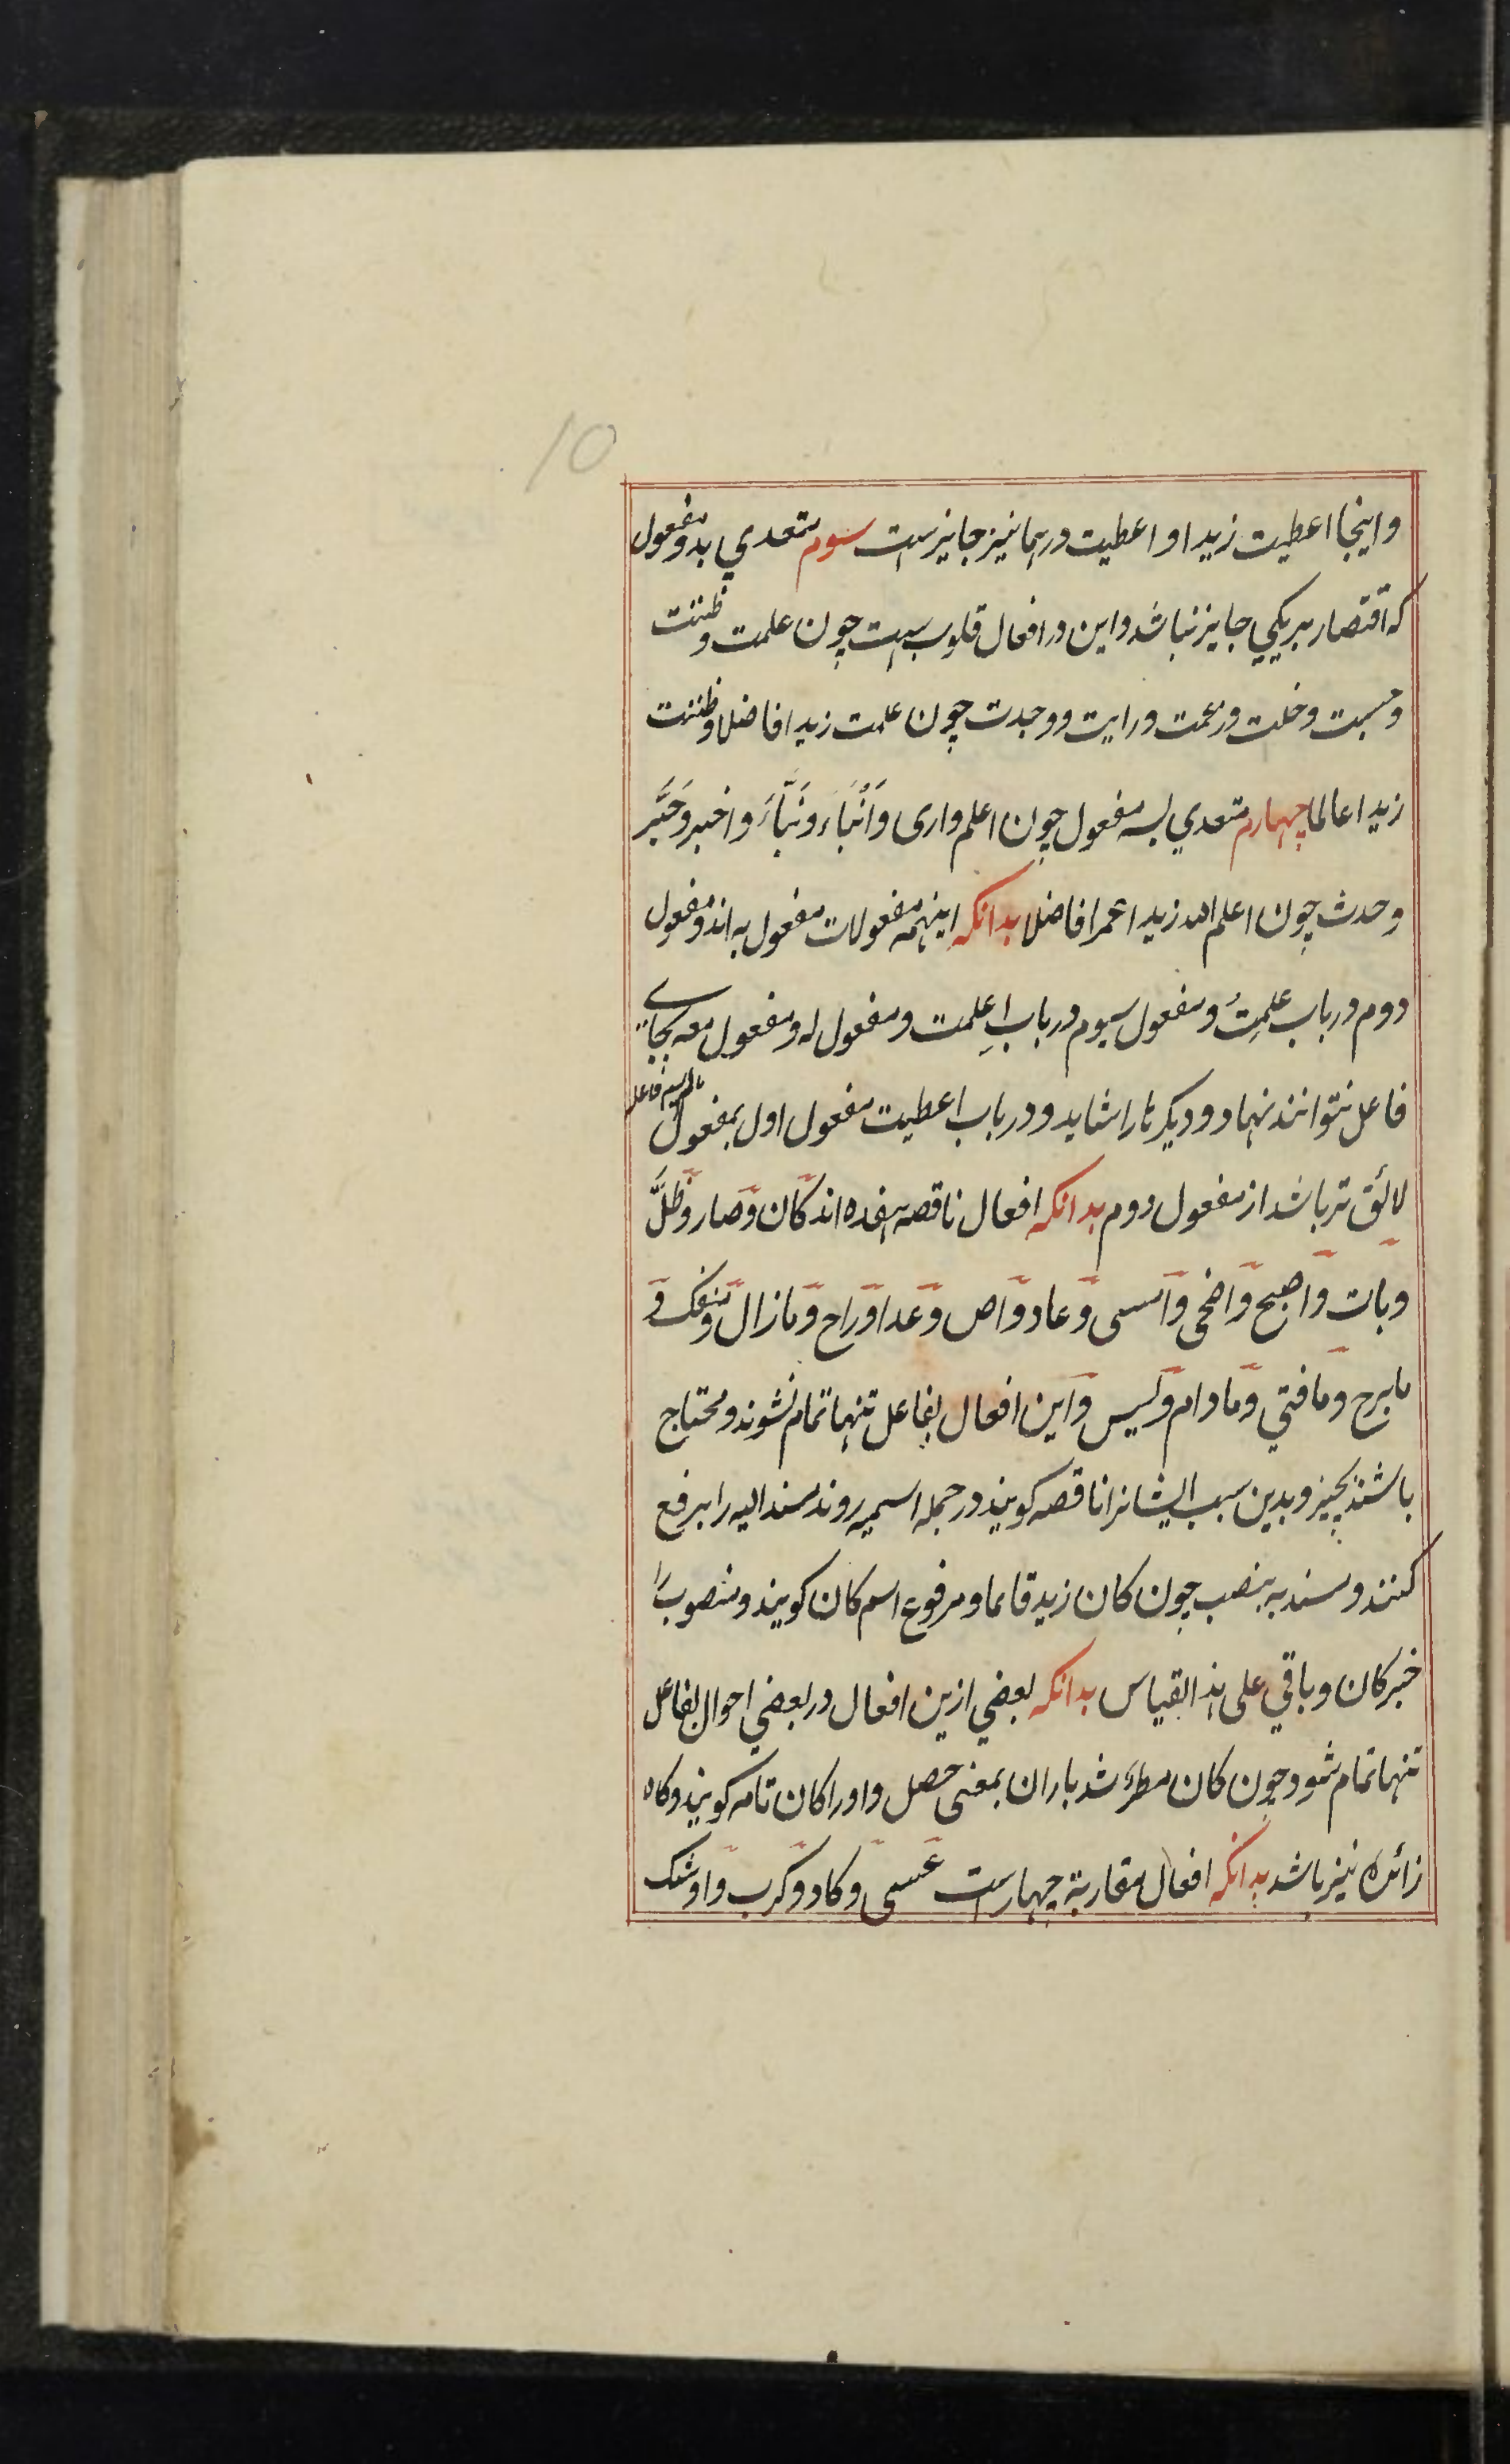 10
و اینجا اعطیت زیدا و اعطیت درهما نیز جایز است سوم متعدي بدو مفعول
که اقتصار بر یکي جایز نباشد و این در افعال قلوب است چون علمت و ظننت
و حسبت و خلت و زعمت و رایت و وجدت چون علمت زیدا فاضلا و ظننت
زیدا عالما چهارم متعدي بسه مفعول چون اعلم و اری وَاَنْبَاءَ وَنَبَّاءَ و اخبر وخَبَّر
و حدث چون اعلم الله زیدا عمرا فاضلا بدانکه اینهمه مفعولات مفعول به اند و مفعول
دوم در باب علمِتُ و مفعول سیوم در باب اعلمت و مفعول له و مفعول معه بجاے
فاعل نتوانند نهاد و دیگر ها را شاید و در باب اعطیت مفعول اول بمفعول مالم یسم فاعله
لائق تر باشد از مفعول دوم بدانکه افعال ناقصه هفده اند کان و صار و ظلَّ
و بات و اصبح و اضحی و امسی و عاد و اض و غدا و راح و ما زال و منفک و
ما برح و ما فتي و ما دام و لیس و این افعال بفاعل تنها تمام نشوند و محتاج
باشند بچیز و بدین سبب ایشانرا ناقصه گویند در جمله اسمیه روند مسند الیه را برفع
کنند و مسند به بنصب چون کان زید قائما و مرفوع اسم کان گویند و منصوب را
خبر کان و باقي علی هذا القیاس بدانکه بعضي ازین افعال در بعضي احوال بفاعل
تنها تمام شود چون کان مطرٌ شد باران بمعنی حصل و اورا کان تامه گویند و گاه
زائده نیز باشد بدانکه افعال مقاربة چهار است عسی و کاد و کرب و اوشک